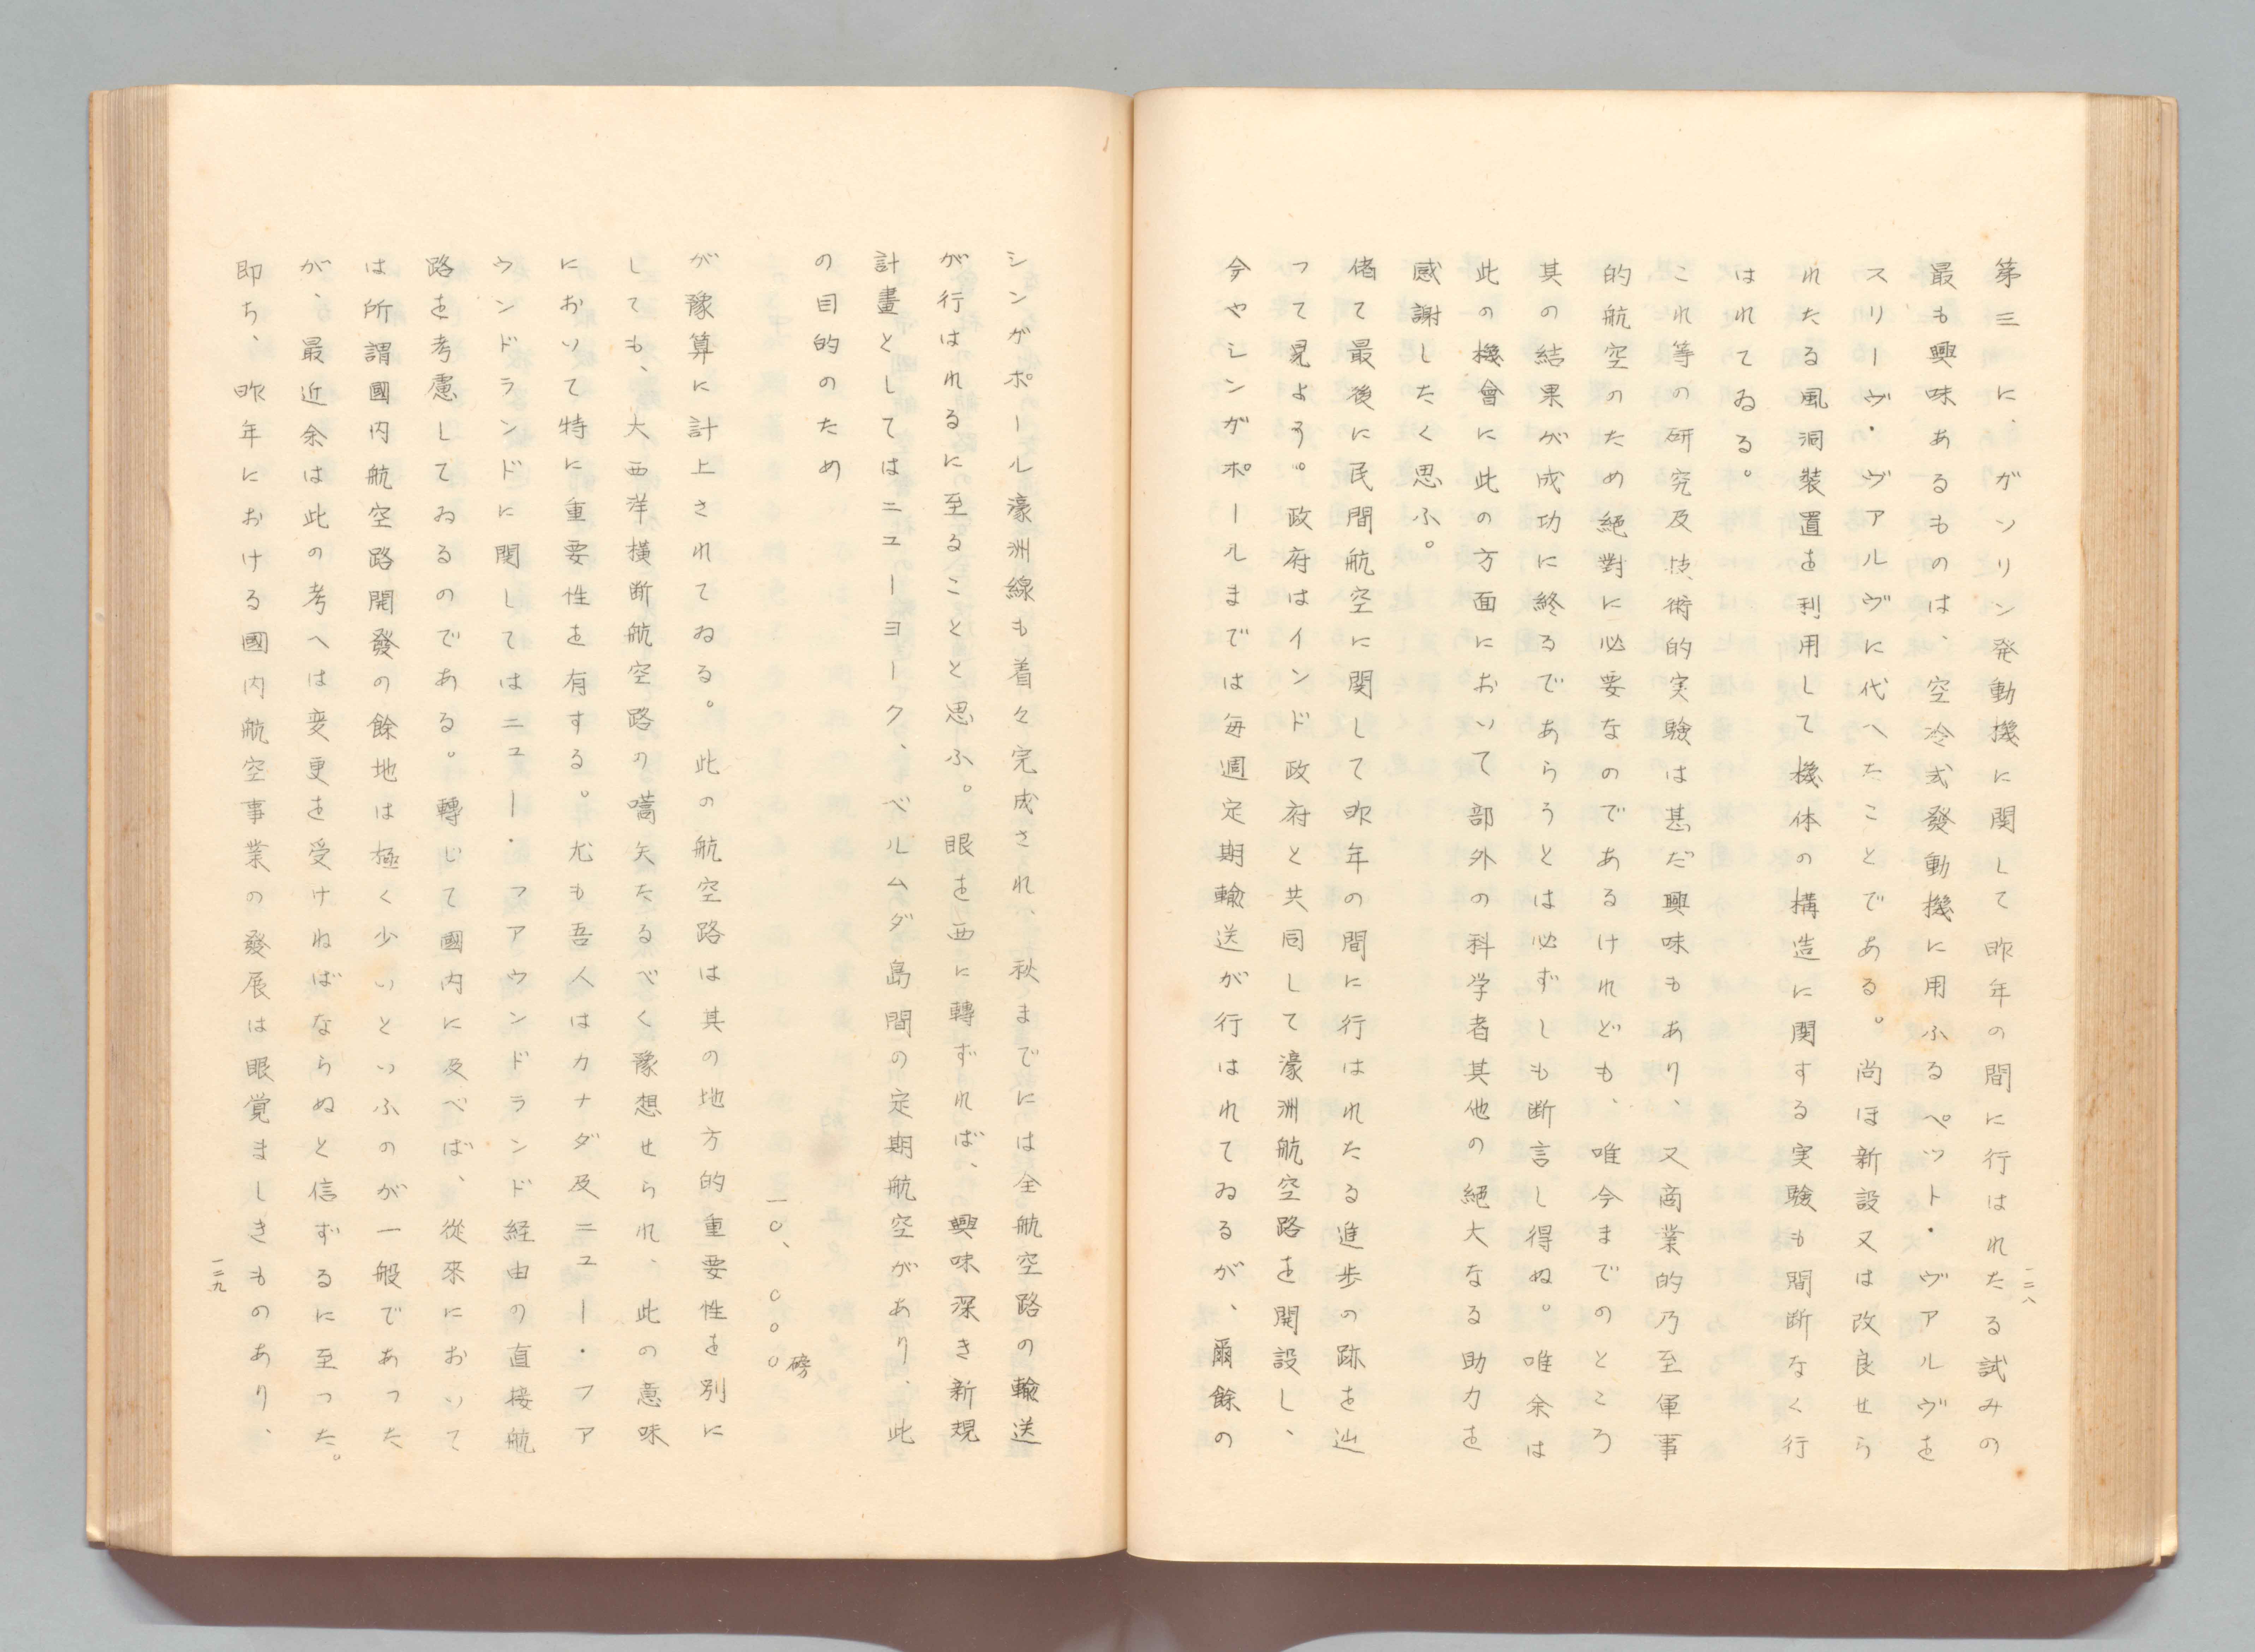 一二八
第三に、ガソリン発動機に関して昨年の間に行はれたる試みの
最も興味あるものは、空冷式發動機に用ふるペット・ヴアルヴを
スリーヴ・ヴアルヴに代へたことである。尚ほ新設又は改良せら
れたる風洞装置を利用して機体の構造に関する実験も間断なく行
はれてゐる。
これ等の研究及技術的実験は甚だ興味もあり、又商業的乃至軍事
的航空のため絕對に必要なのであるけれども、唯今までのところ
其の結果が成功に終るであらうとは必ずしも断言し得ぬ。唯余は
此の機會に此の方面において部外の科学者其他の絕大なる助力を
感謝したく思ふ。
偖て最後に民間航空に関して昨年の間に行はれたる進歩の跡を辿
つて見よう。政府はインド政府と共同して濠洲航空路を開設し、
今やシンガポールまでは毎週定期輸送が行はれてゐるが、爾餘の
シンガポール濠洲線も着々完成され、秋までには全航空路の輸送
が行はれるに至ることと思ふ。眼を西に轉ずれば、興味深き新規
計畫としてはニューヨーク、ベルムダ島間の定期航空があり、此
の目的のため
一〇、〇〇〇磅
が豫算に計上されてゐる。此の航空路は其の地方的重要性を別に
しても、大西洋橫断航空路の嚆矢たるべく豫想せられ、此の意味
において特に重要性を有する。尤も吾人はカナダ及ニュー・フア
ウンドランドに関してはニュー・フアウンドランド経由の直接航
路を考慮してゐるのである。轉じて國内に及べば、從來において
は所謂國内航空路開發の餘地は極く少いといふのが一般であつた
が、最近余は此の考へは変更を受けねばならぬと信ずるに至つた。
即ち、昨年における國内航空事業の發展は眼覚ましきものあり、
一二九